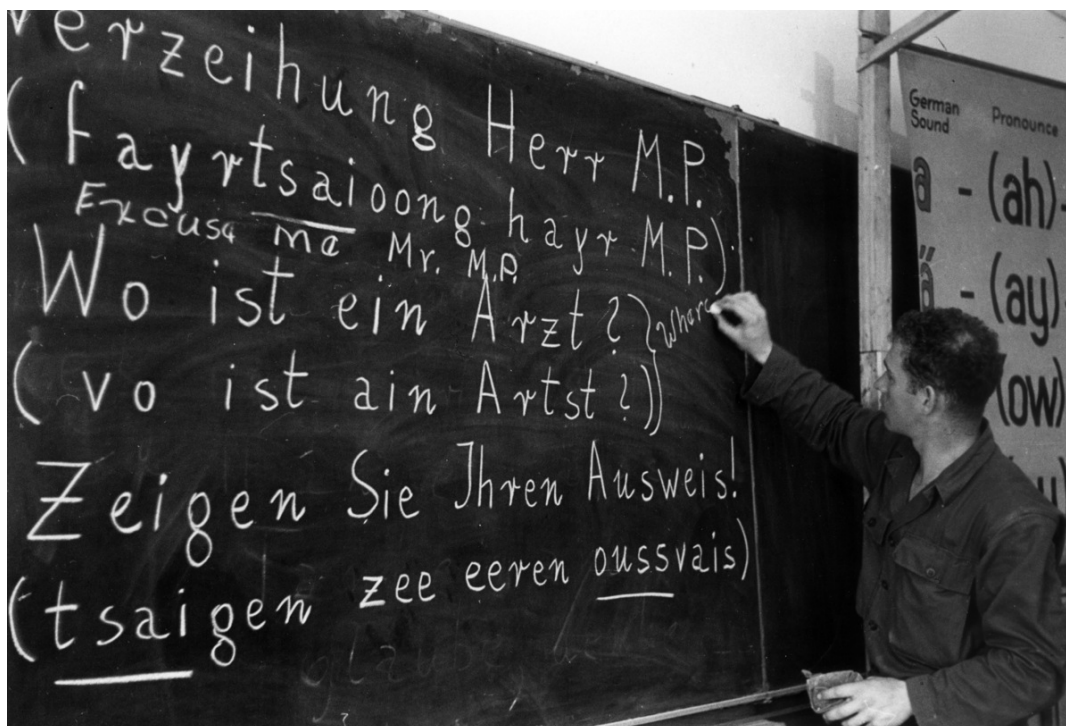 Verzeihung Herr M.P.
(fayrtsaioong hayr M.P.)
Excuse me Mr. M.P.
Wo ist ein Arzt?) Where
(vo ist ain Artst?))
Zeigen Sie Ihren Ausweis!
(tsaigen zee eeren oussvais)
glaube
German Sound Pronounce
a - (ah)-
ä - (ay)-
(ow)